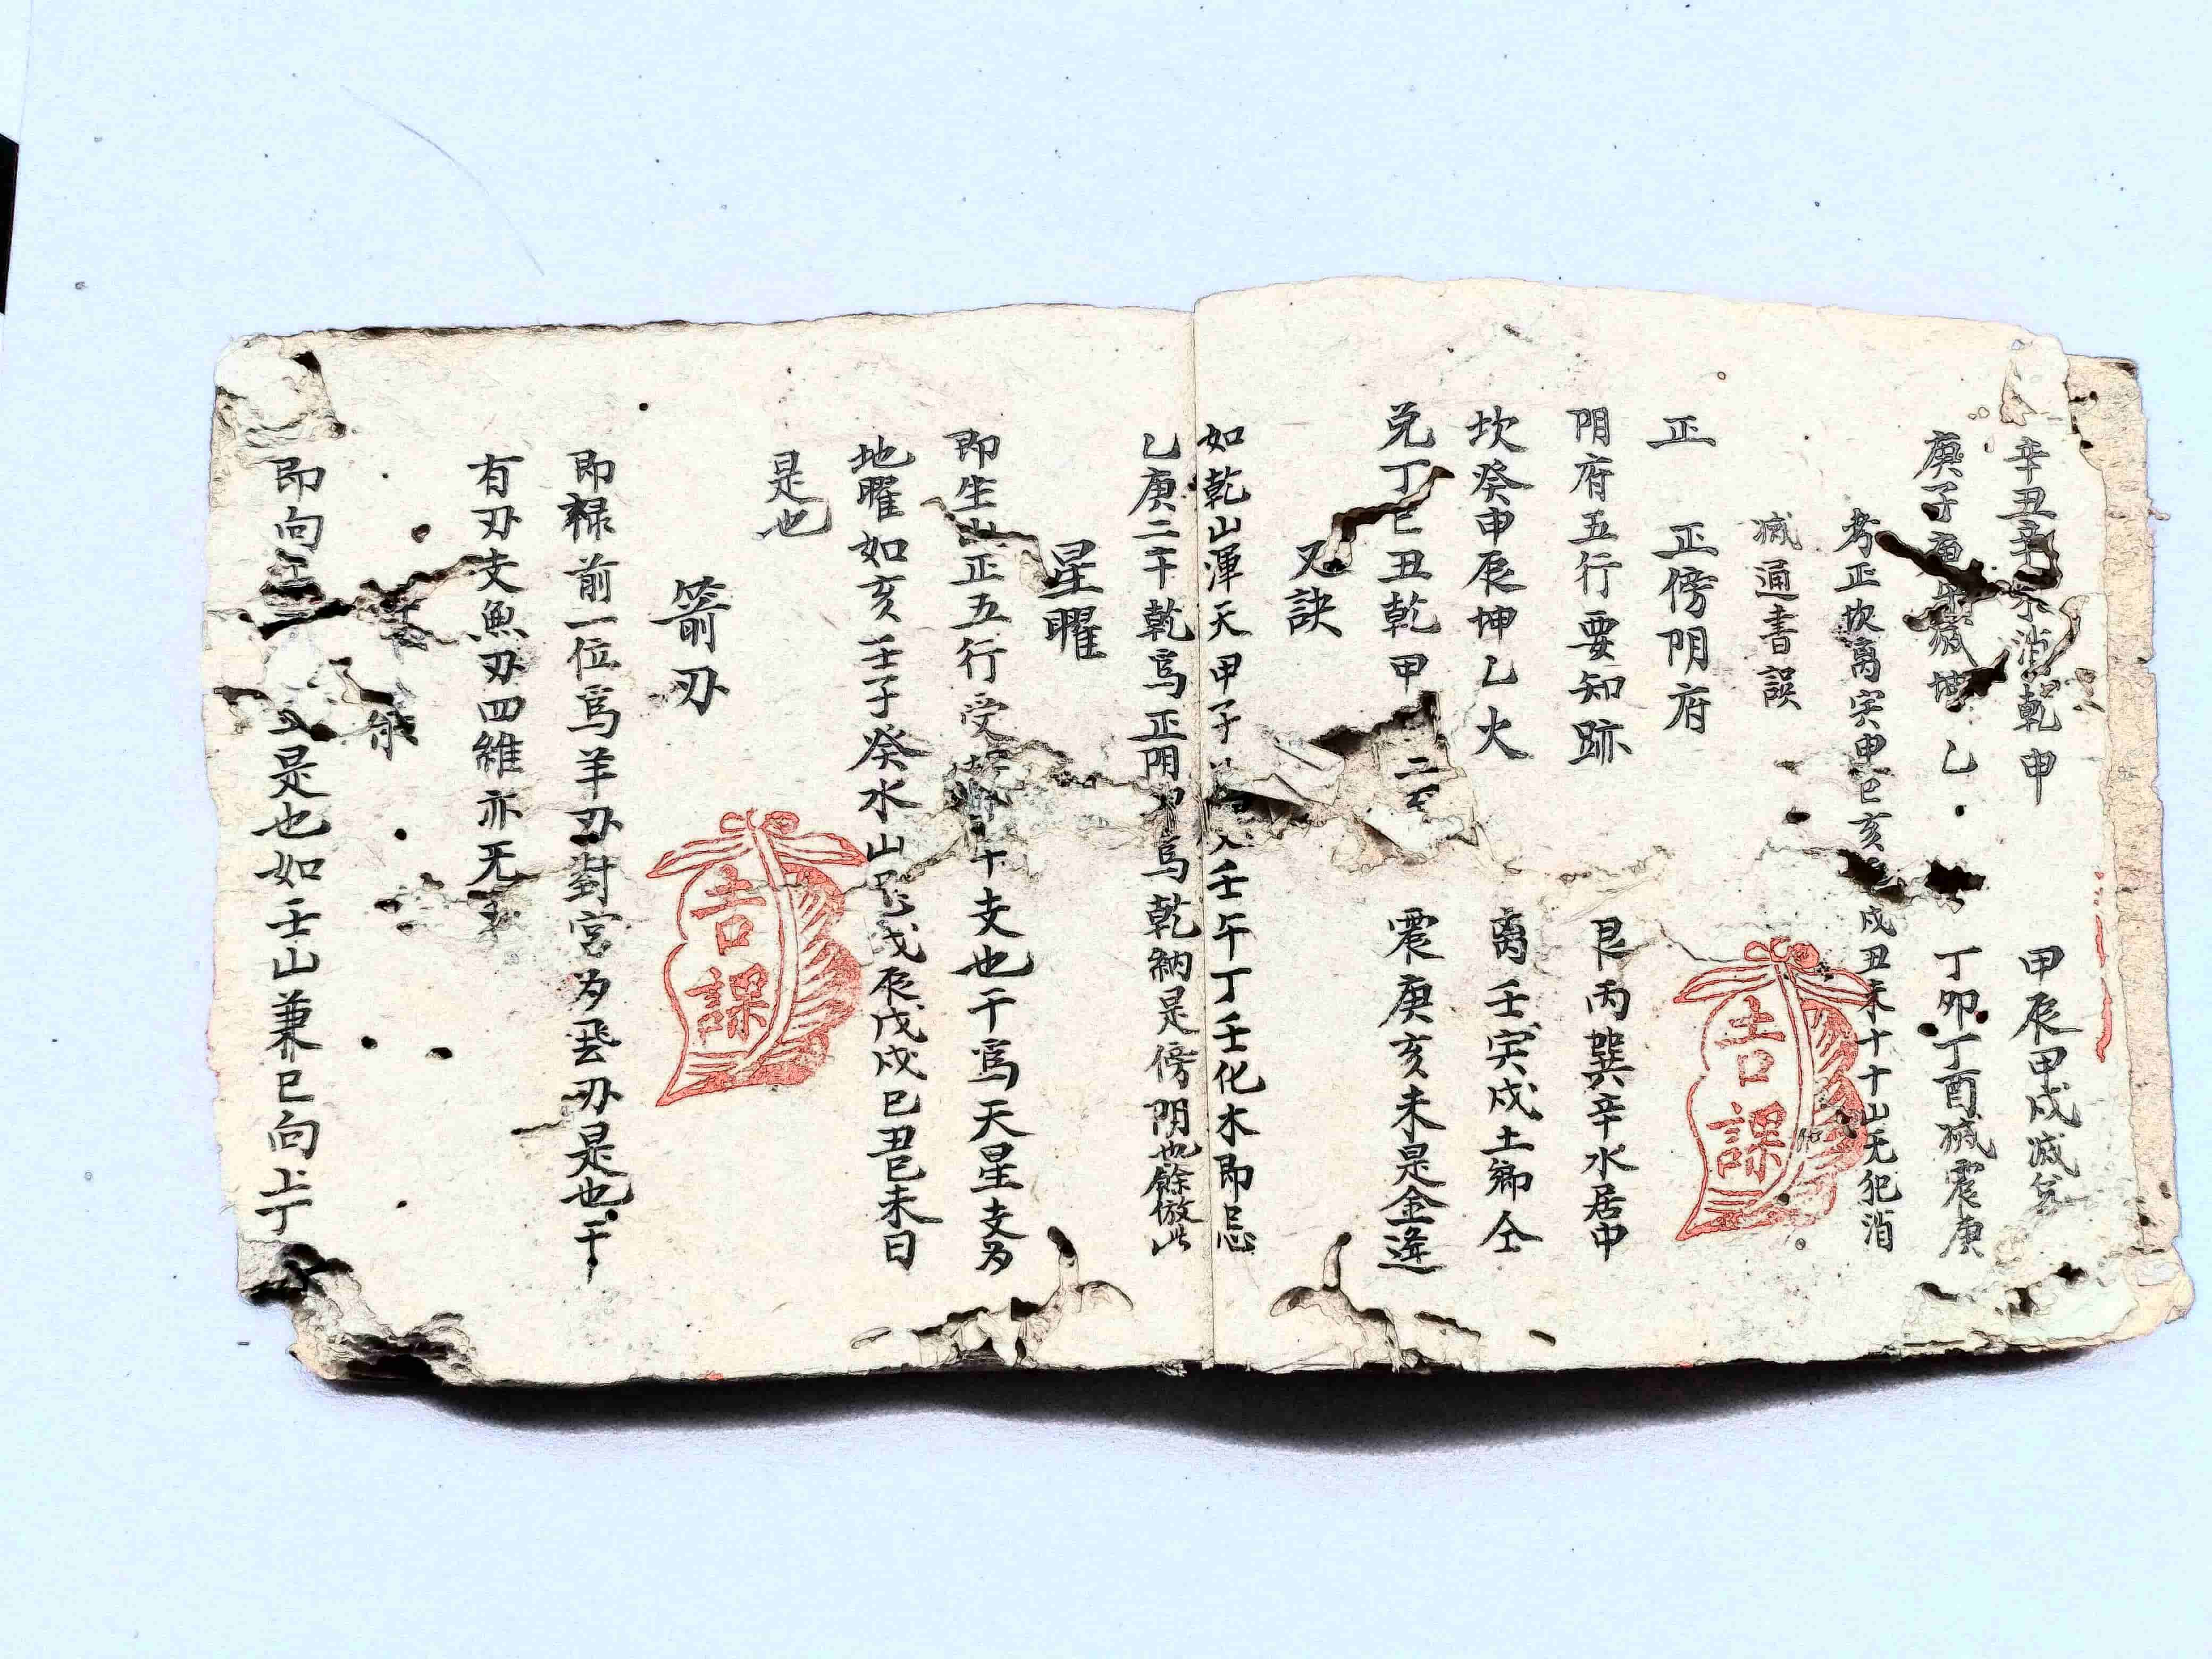 辛丑辛 消乾甲 甲辰甲戌滅兌
庚子庚午滅坎 乙 丁卯丁酉滅震庚
考正坎离寅申巳亥 戌丑未十十山无犯消
滅通書誤
正 正傍阴府
阴府五行要知跡 艮丙巽辛水居中
坎癸申辰坤乙火 离壬寅戌土鄉仝
兑丁巳丑乾甲二 震庚亥未是金逢
又訣
如乾山渾天甲子 壬午丁壬化木即忌
乙庚二干乾爲正阴 爲乾納是傍阴也餘倣此
星曜
即生 正五行受 干支也干爲天星支为
地曜如亥壬子癸水山忌戊辰戊戌巳丑巳未日
是也
箭刃
即禄前一位爲羊刃對宮为飛刃是也干
有刃支魚刃四維亦无
即向 是也如壬山兼巳向上丁
吉課
吉課